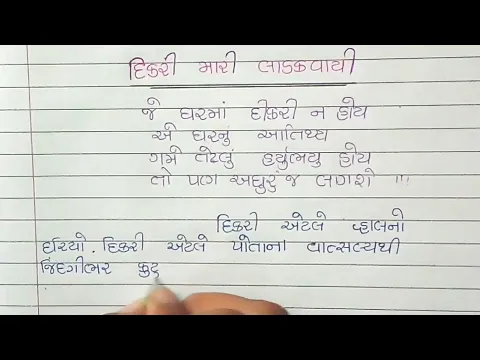 દિકરી મારી લાડકવાયી
જે ઘરમાં દીકરી ન હોય
એ ઘરનું આતિથ્ય
ગમે તેટલું હોય
તો પણ અધુરું જ લાગશે !!!
દિકરી એટલે વ્હાલનો
દરિયો. દિકરી એટલે પોતાના વાત્સલ્યથી
જિંદગીભર કુટુ